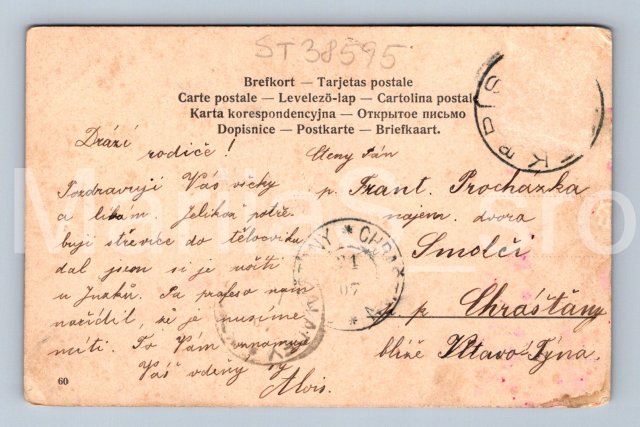 ST 38595
Brefkort — Tarjetas postale
Carte postale — Levelező-lap — Cartolina postal
Karta korespondencyjna — Открытое письмо
Dopisnice — Postkarte — Briefkaart.
Drazí
rodiče!
Pozdravuji Vás všcky
a líbám. Jelikož potře
buji střevíce do tělocviku
dal jsem si je ušíti
u Pa profesor nám
nařídil že je musíme
míti. To Vám oznamuje
Váš vděčný syn
Alois.
Ctěný Pán
p. Frant. Procházka
najem. dvora
Smolči
p. Chrášťany
blíže Vltavo Týna.
CHRA
21
07
60